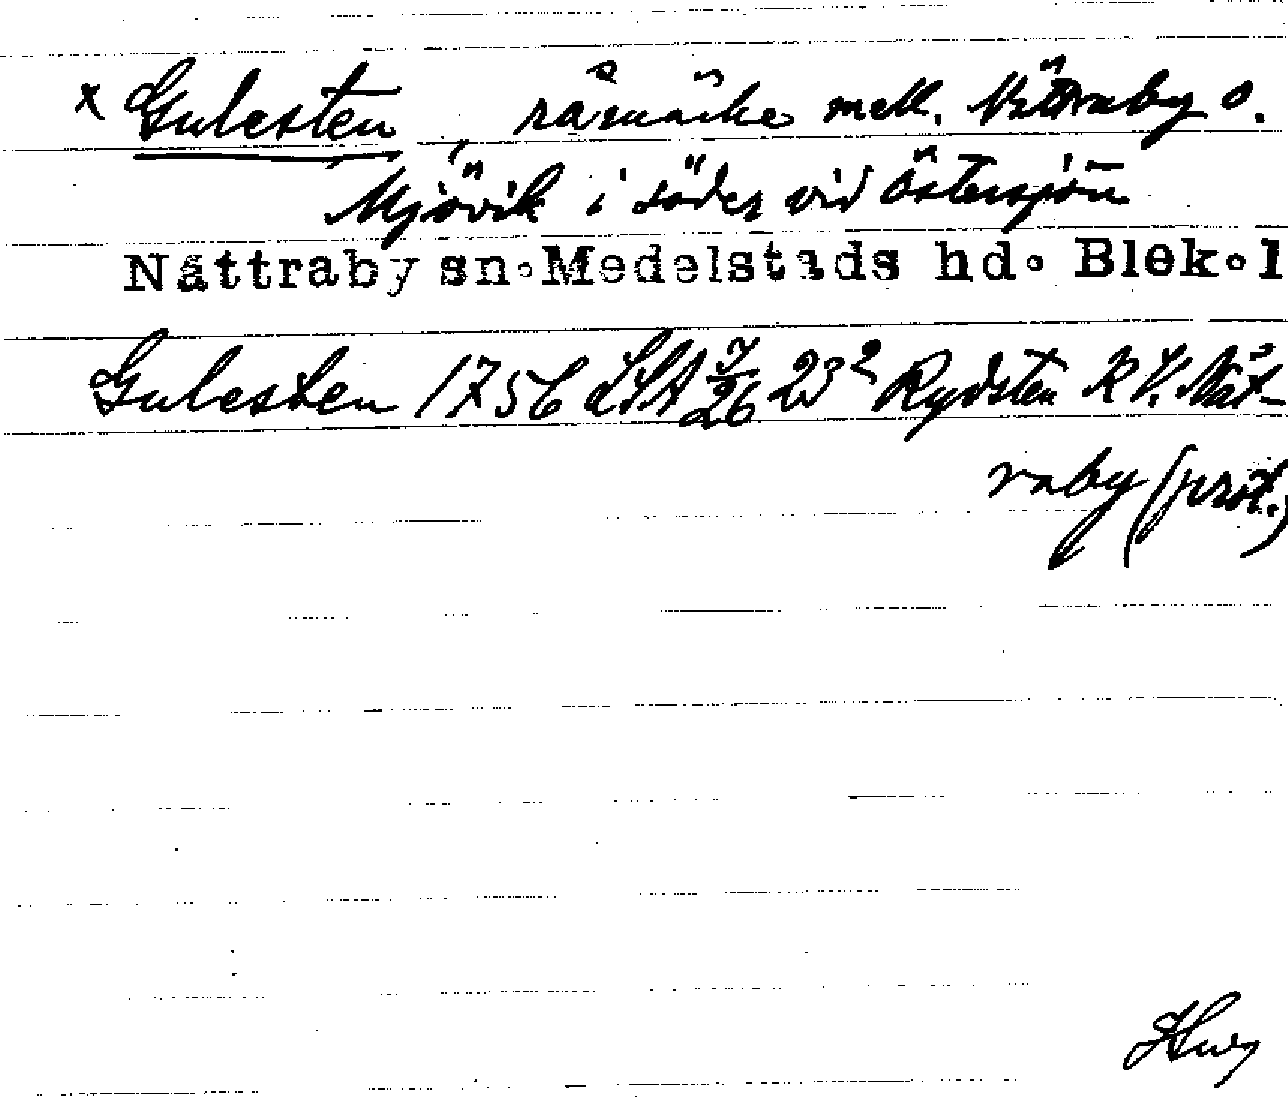 x Gulesten, råmärke mell. Nättraby o.
Mjövik i söder vid Östersjön
Nättraby sn. Medelstads hd. Blek. l
Gulesten 1756 LSA 23² Rydsten RV. Nät-
raby (prot.)